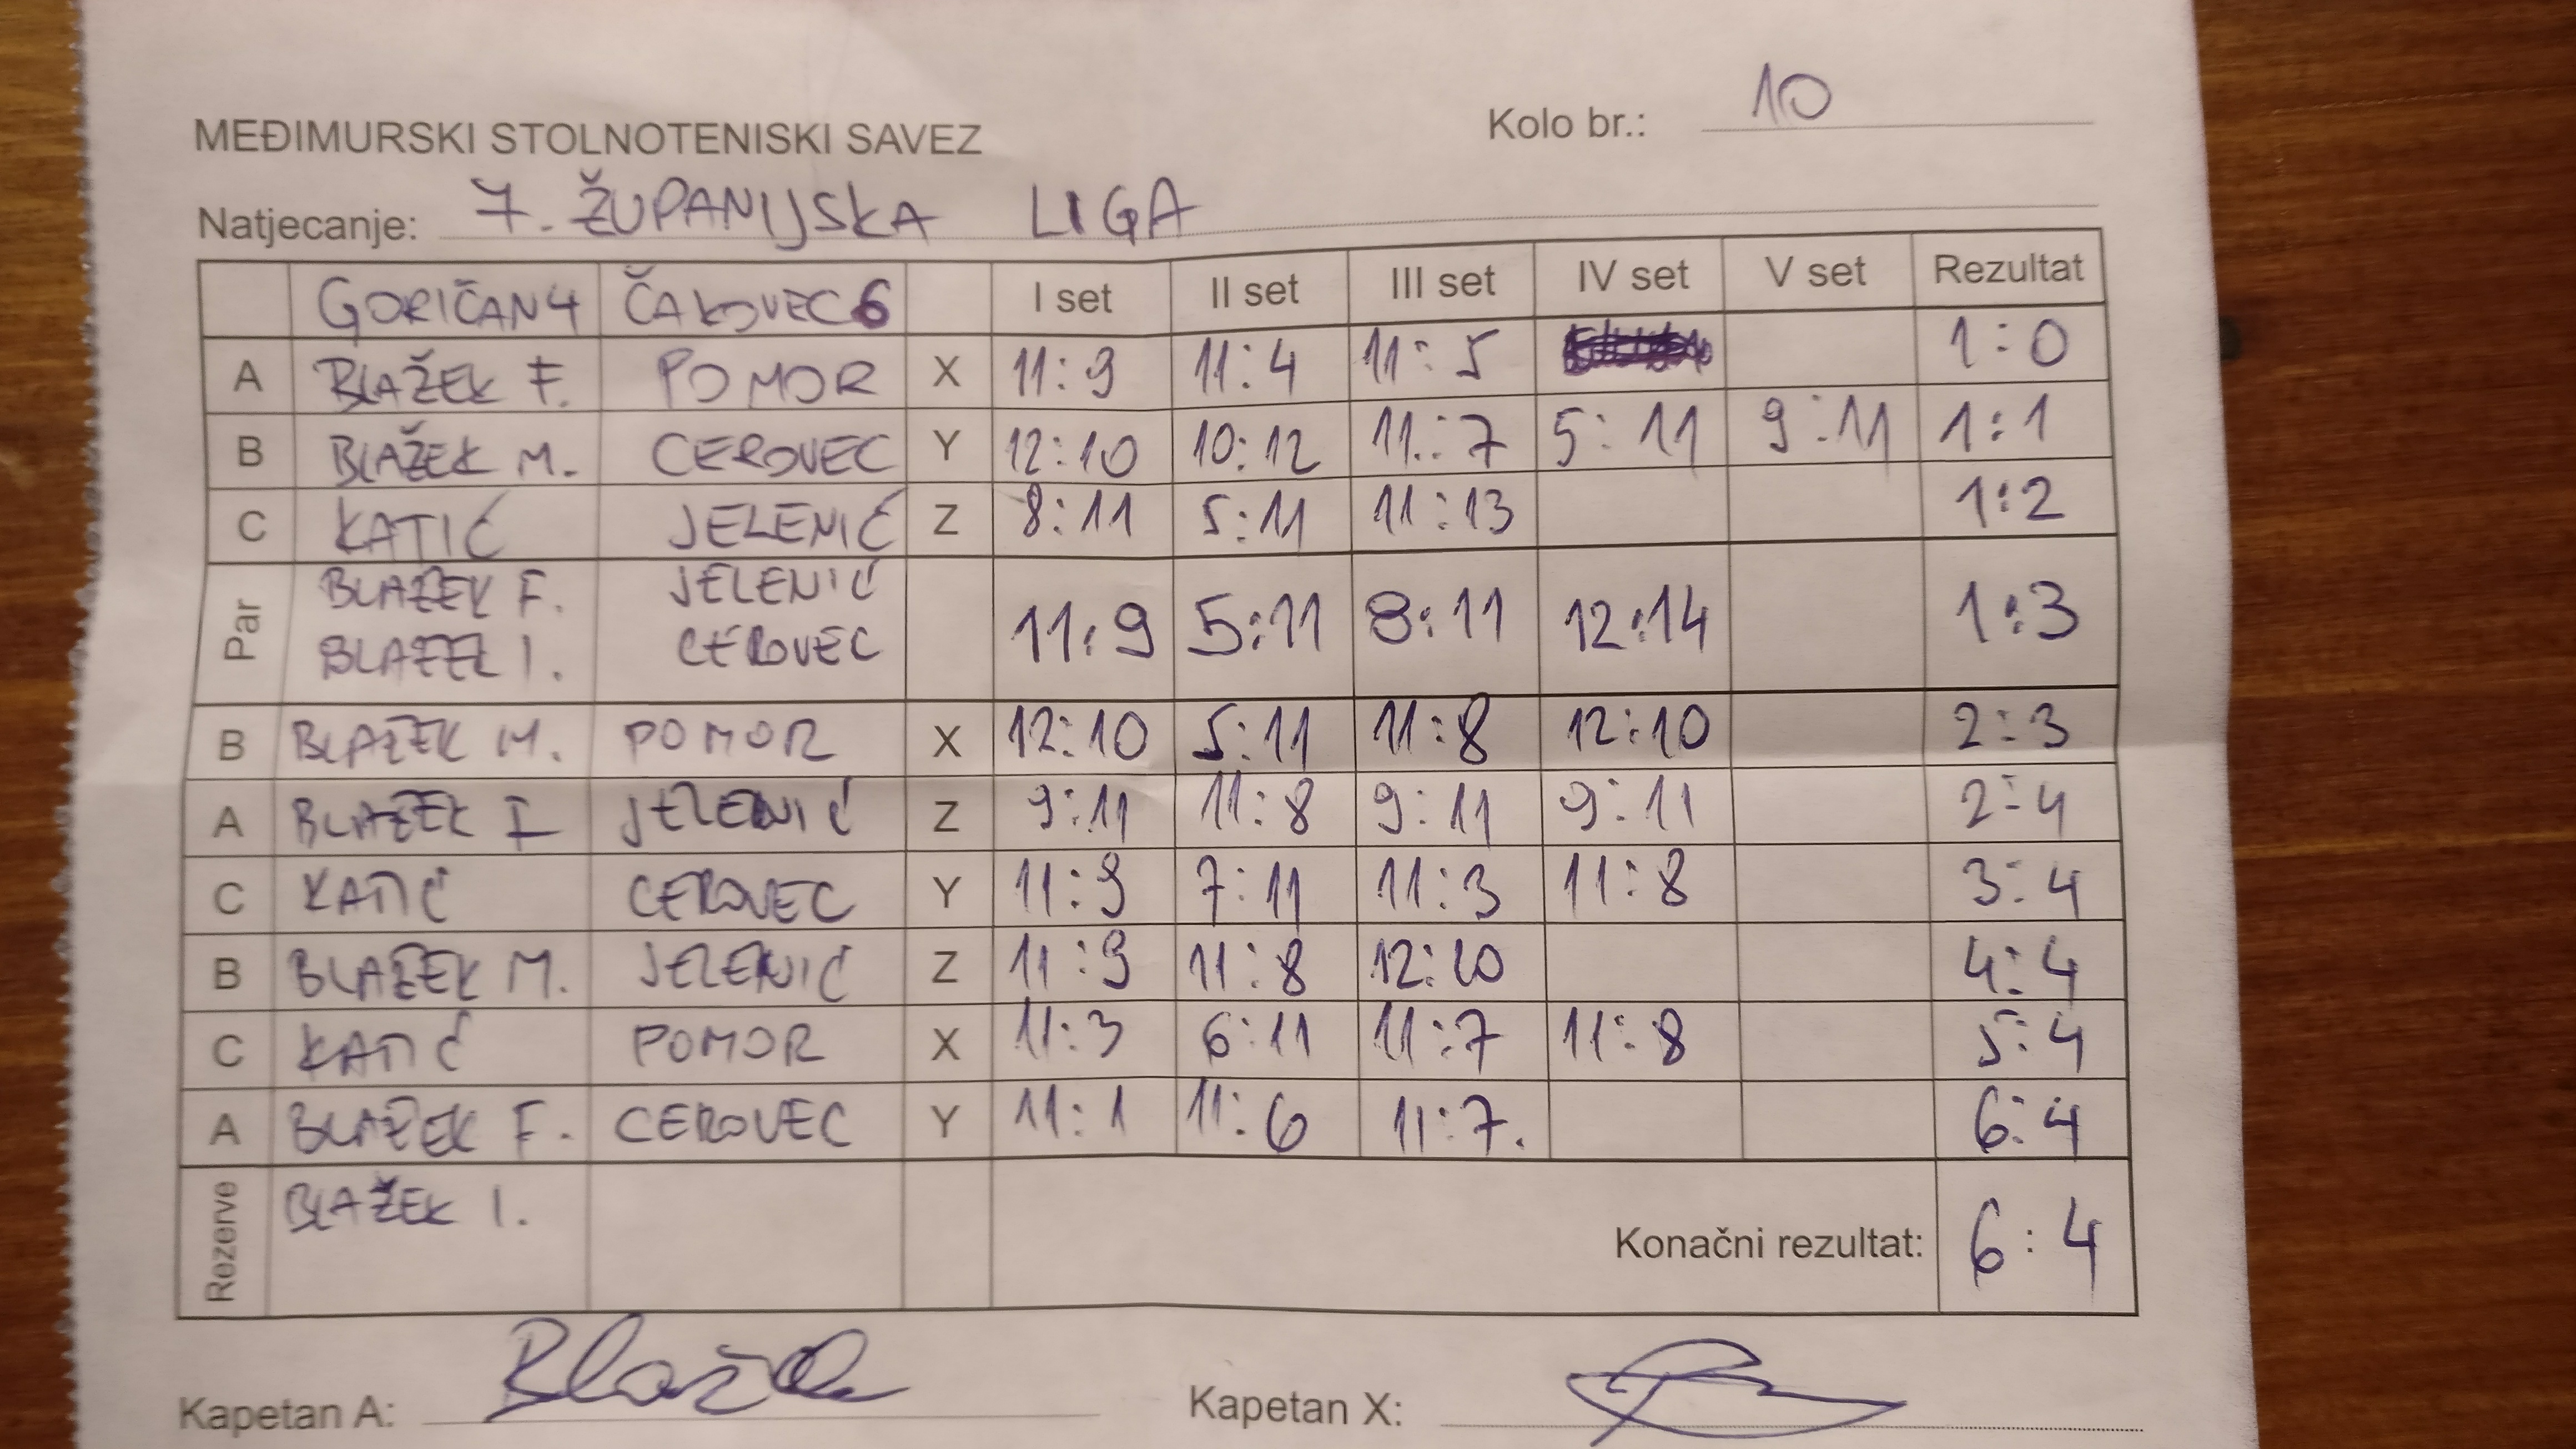 Kolo br.: 10
MEĐIMURSKI STOLNOTENISKI SAVEZ
Natjecanje: 7. ŽUPANIJSKA LIGA
GORIČAN 4 ČAKOVEC 6 I set II set III set IV set V set Rezultat
A BLAŽEK F. POMOR X 11:9 11:4 11:5 1:0
B BLAŽEK M. CEROVEC Y 12:10 10:12 11:7 5:11 9:11 1:1
C KATIĆ JELENIĆ Z 8:11 5:11 11:13 1:2
Par BLAŽEK F. JELENIĆ 11:9 5:11 8:11 12:14 1:3
BLAŽEK I. CEROVEC
B BLAŽEK M. POMOR X 12:10 5:11 11:8 12:10 2:3
A BLAŽEK F JELENIĆ Z 9:11 11:8 9:11 9:11 2:4
C KATIĆ CEROVEC Y 11:9 7:11 11:3 11:8 3:4
B BLAŽEK M. JELENIĆ Z 11:9 11:8 12:10 4:4
C KATIĆ POMOR X 11:3 6:11 11:7 11:8 5:4
A BLAŽEK F. CEROVEC Y 11:1 11:6 11:7. 6:4
Rezerve BLAŽEK I.
Konačni rezultat: 6:4
Kapetan A: Blažek Kapetan X: